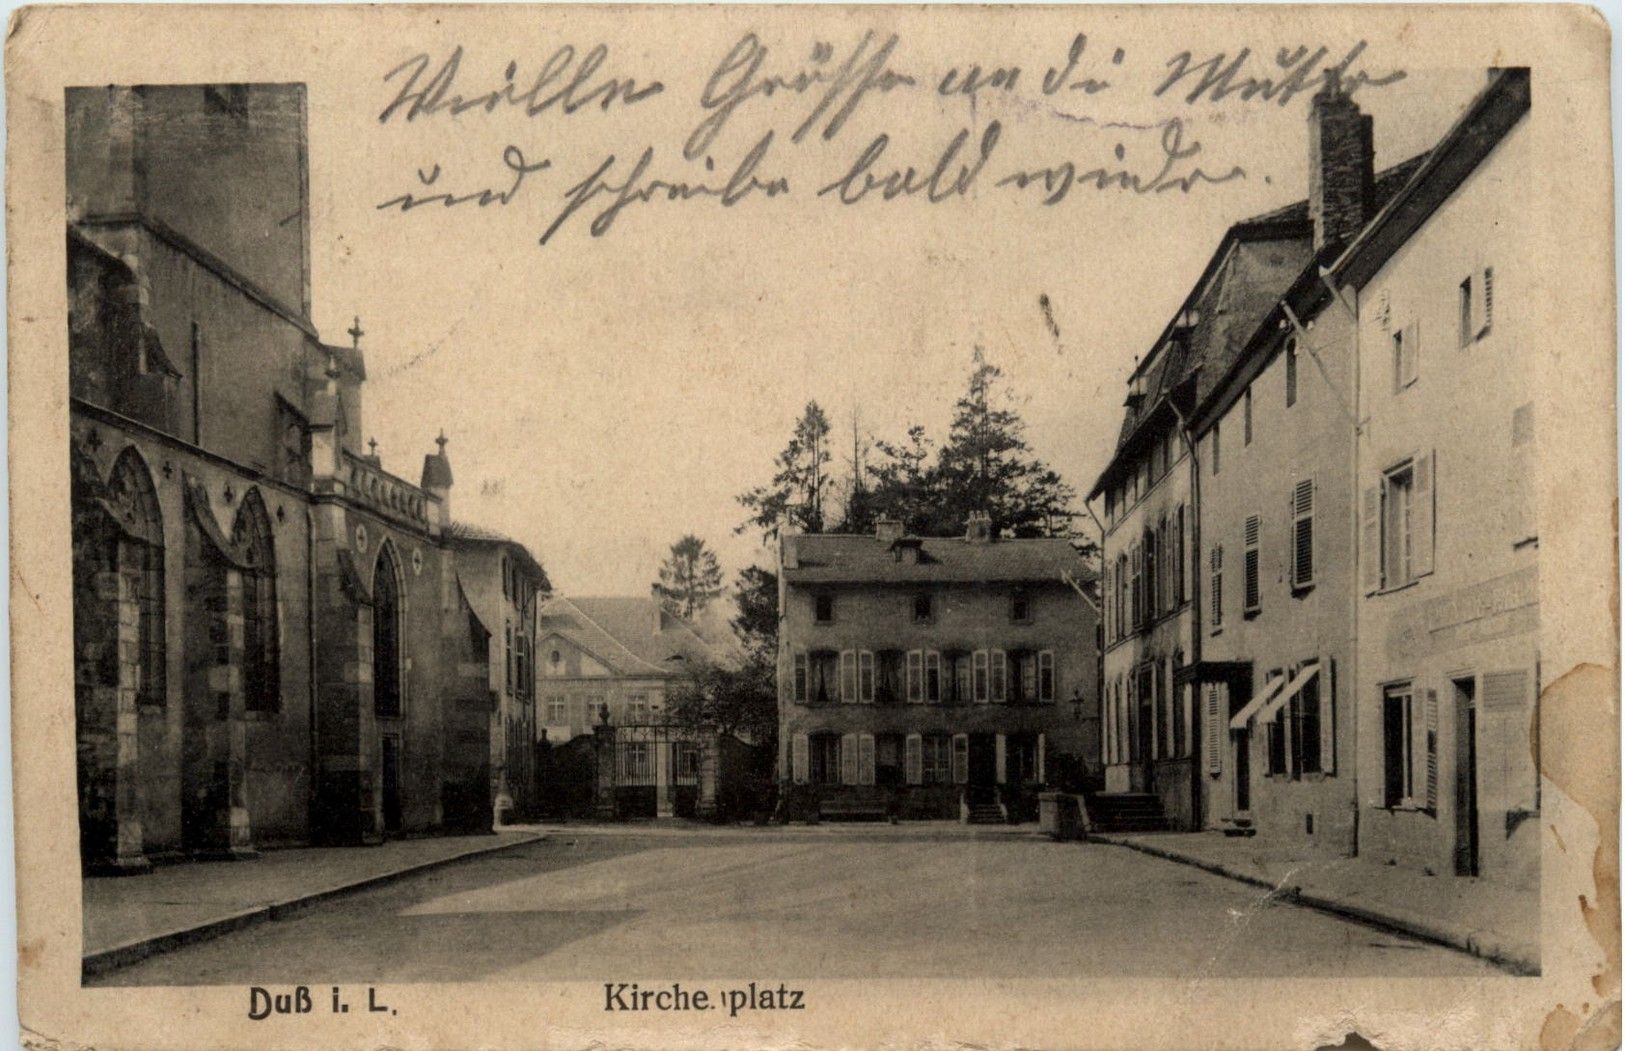 Vielle Grüsse an di Mutter
und schreibe bald wieder.
Duß i. L.
Kirchenplatz